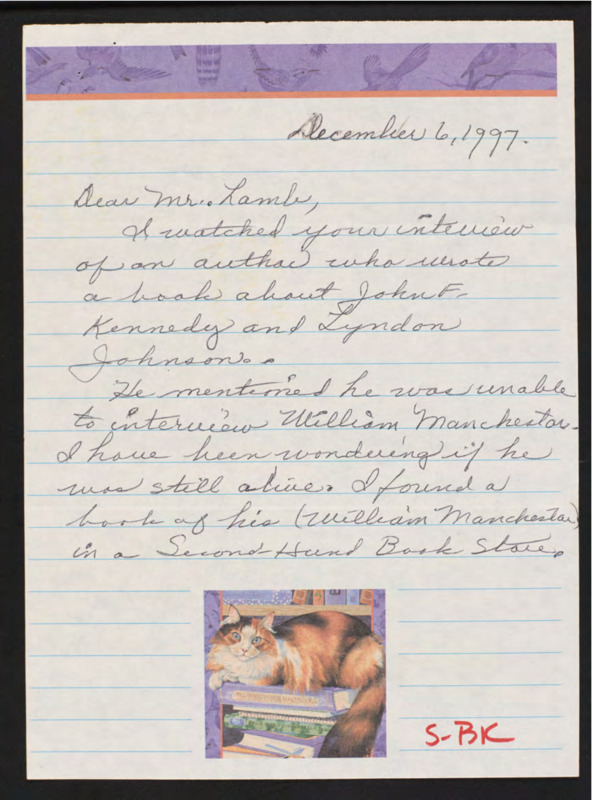 December 6, 1997.
Dear Mr. Lamb,
I watched your interview
of an author who wrote
a book about John F.
Kennedy and Lyndon
Johnson.
He mentioned he was unable
to interview William Manchester.
I have been wondering if he
was still alive. I found a
book of his (William Manchester)
in a Second-Hand Book Store.
S-BK